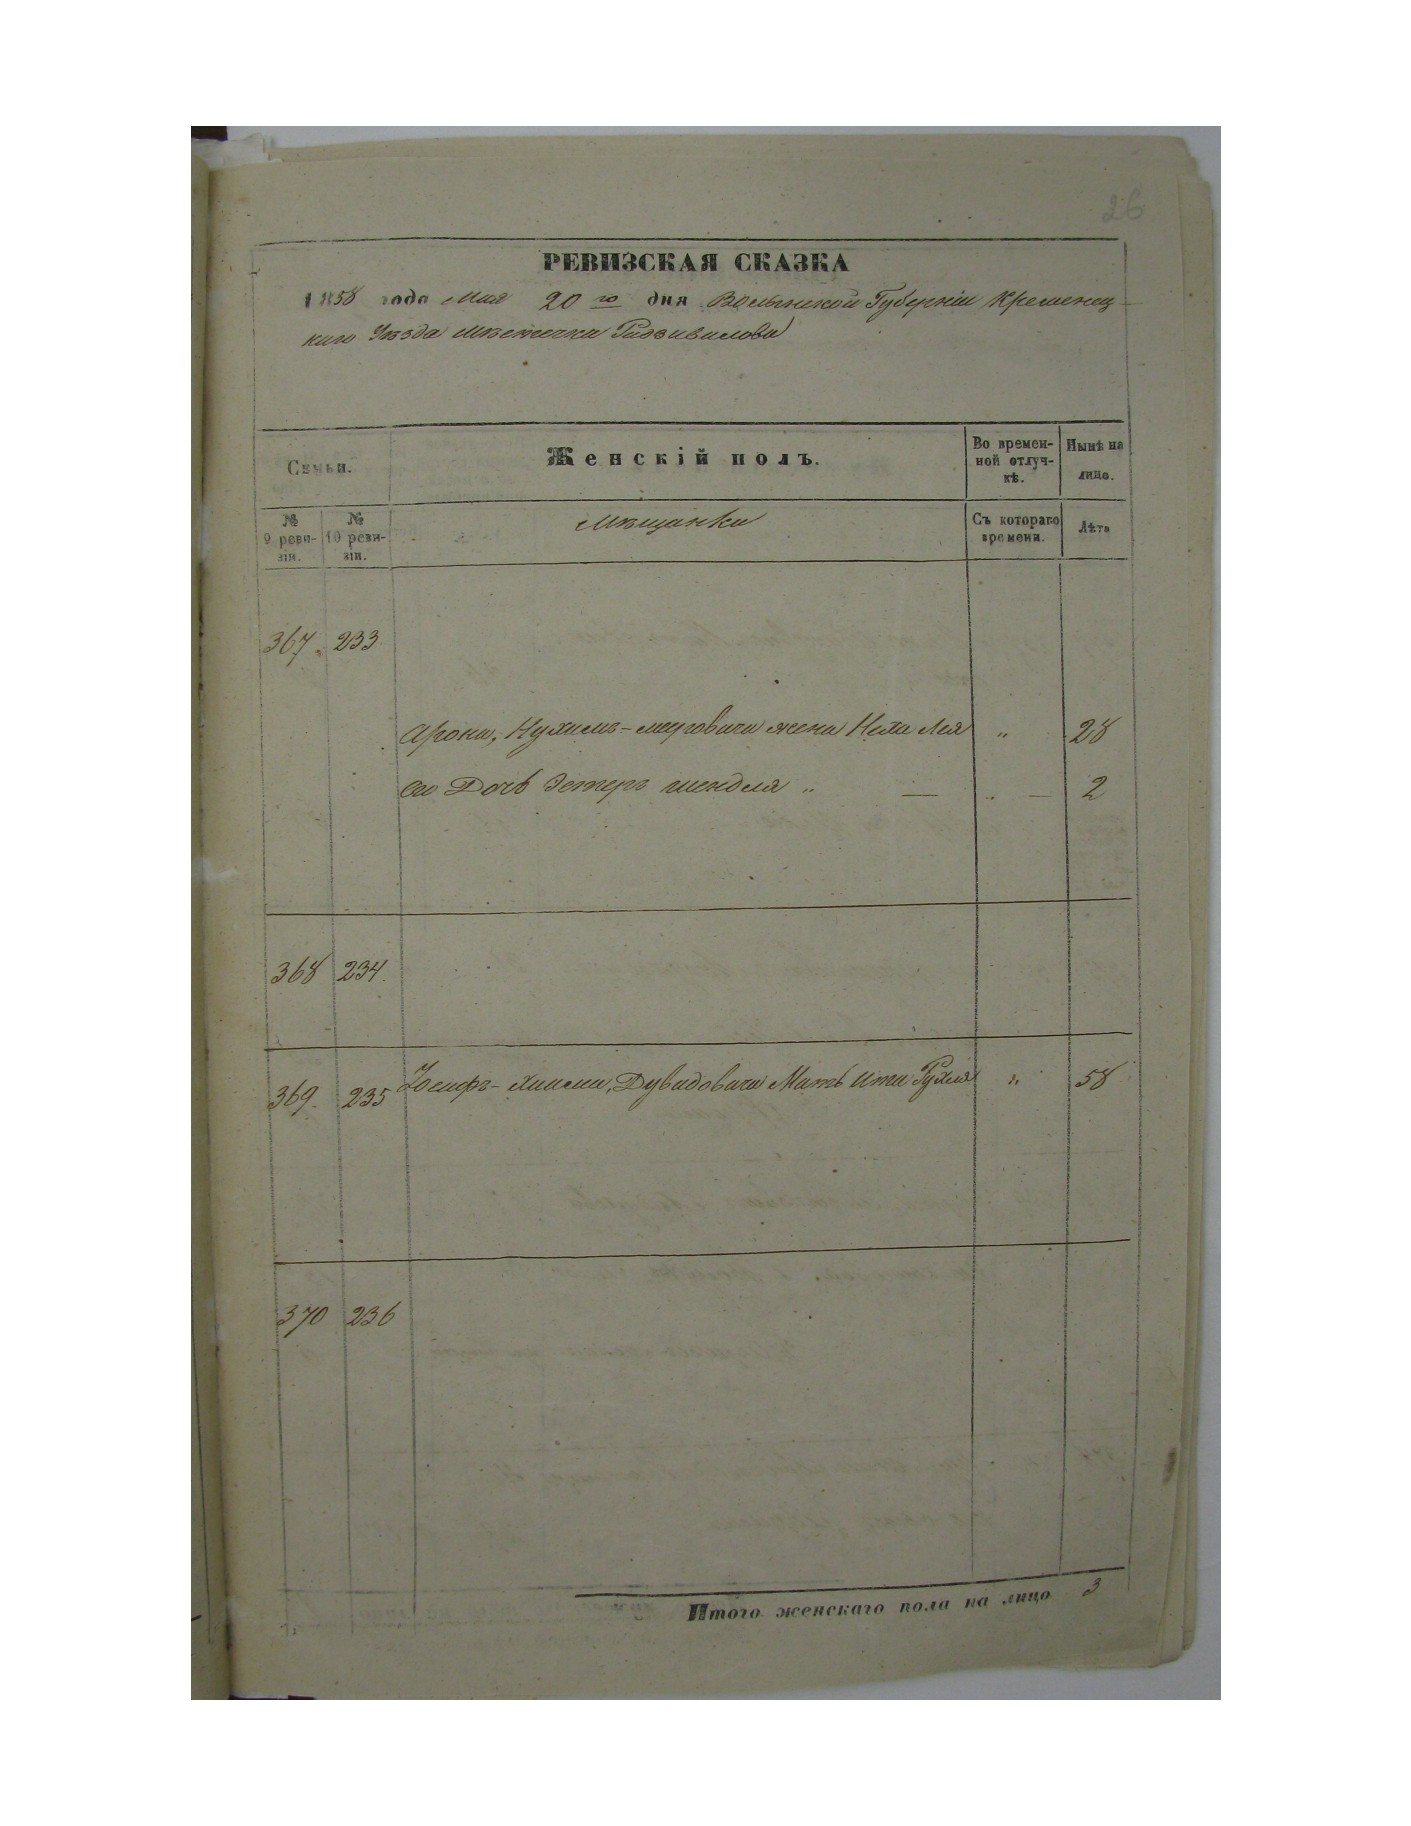 26
РЕВИЗСКАЯ СКАЗКА
1858 года Мая 20го дня Волынской Губерніи Кременец-
каго Уѣзда мѣстечка Радзивилова
Семьи.
Женскій полъ.
Во времен-
ной отлуч-
кѣ.
Нынѣ на
лицо.
№
9 реви-
зіи.
№
10 реви-
зіи.
мѣщанки
Съ котораго
времени.
Лѣта
367. 233
Арона, Нухимъ-меровича жена Неха Лея " 28
его Дочь Эстеръ шендля " — " — 2
368 234.
369. 235 Іосифъ-хаима, Дувидовича Мать Ита Рухля " 58
370 236
Итого женскаго пола на лицо 3